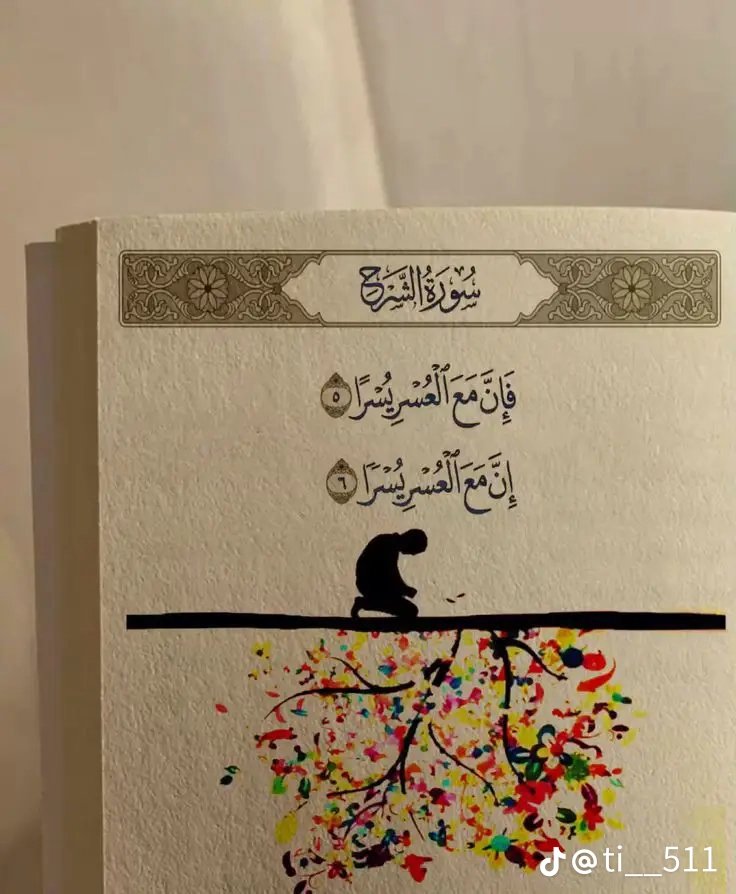 سُورَةُ الشَّرْحِ
فَإِنَّ مَعَ ٱلْعُسْرِ يُسْرًا ٥
إِنَّ مَعَ ٱلْعُسْرِ يُسْرًا ٦
@ti__511